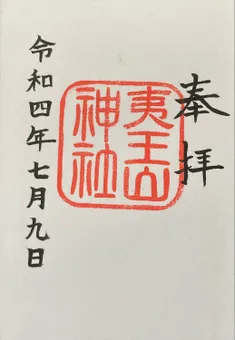 奉拝
夷王山
神社
令和四年七月九日